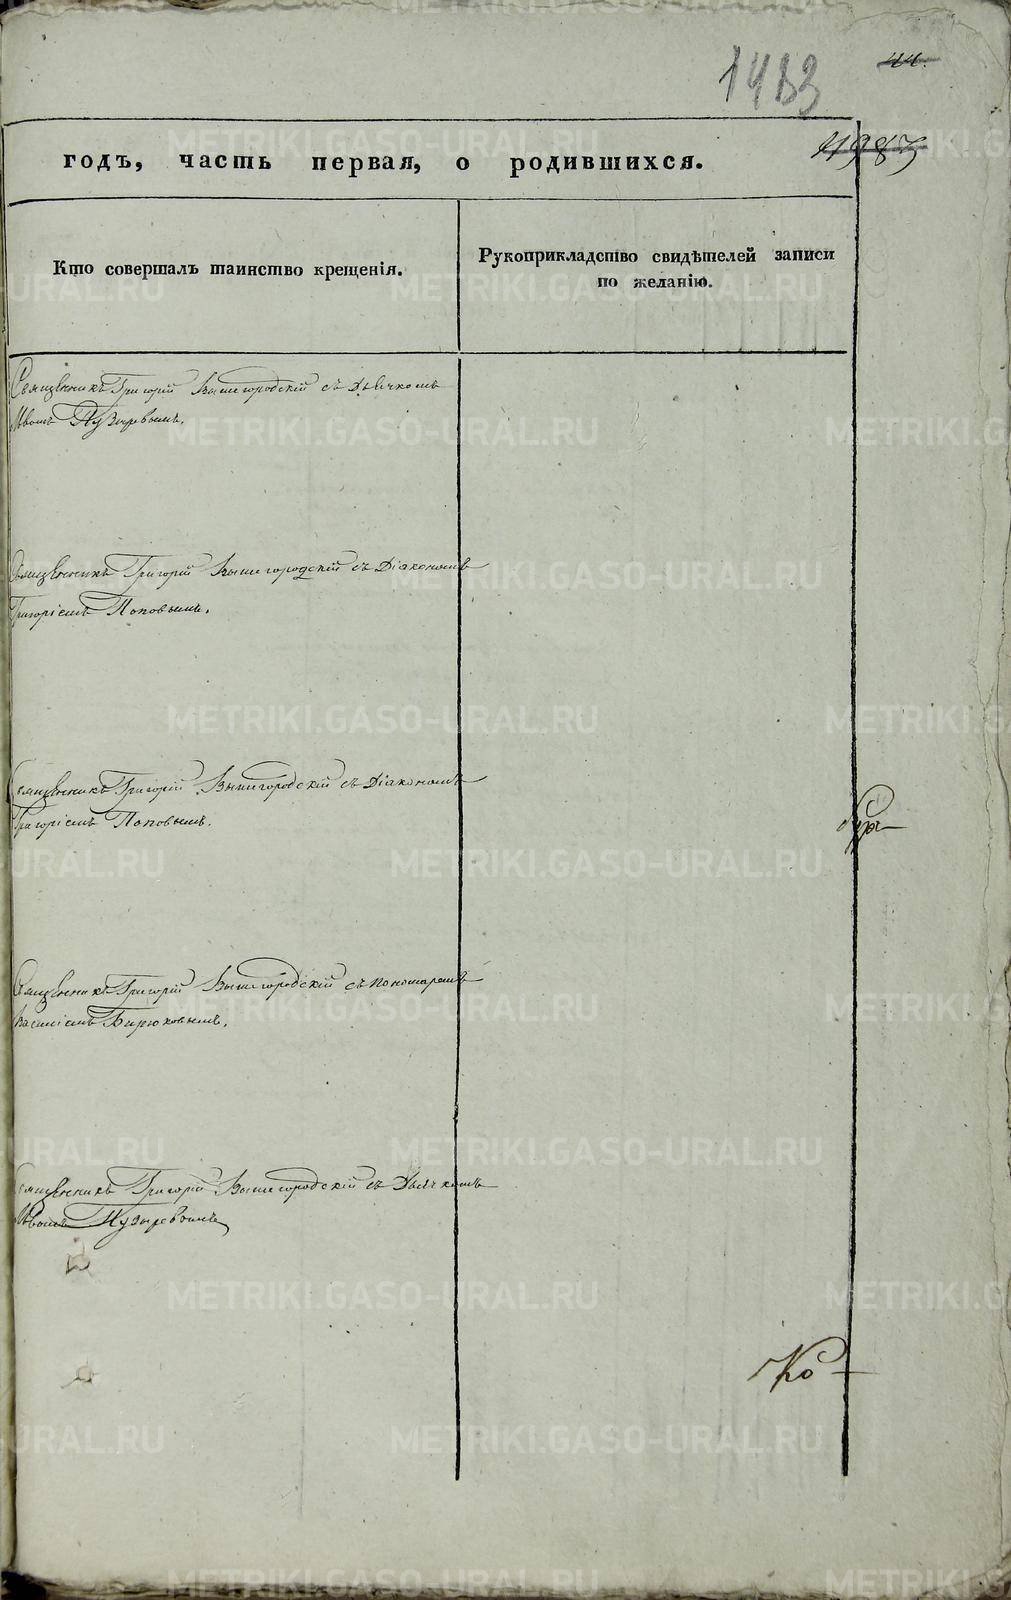 1483
44.
годъ, часть первая, о родившихся.
Кто совершалъ таинство крещенія.
Рукоприкладство свидѣтелей записи
по желанію.
Священникъ Григорій Вышегородскій съ Дьячкомъ
Ивомъ Пузыревымъ.
Священникъ Григорій Вышегородскій съ Діакономъ
Григоріемъ Поповымъ.
Священникъ Григорій Вышегородскій съ Діакономъ
Григоріемъ Поповымъ.
Священникъ Григорій Вышегородскій съ пономаремъ
Василіемъ Бирюковымъ.
Священникъ Григорій Вышегородскій съ Дьячкомъ
Ивомъ Пузыревымъ
Ко
METRIKI.GASO-URAL.RU